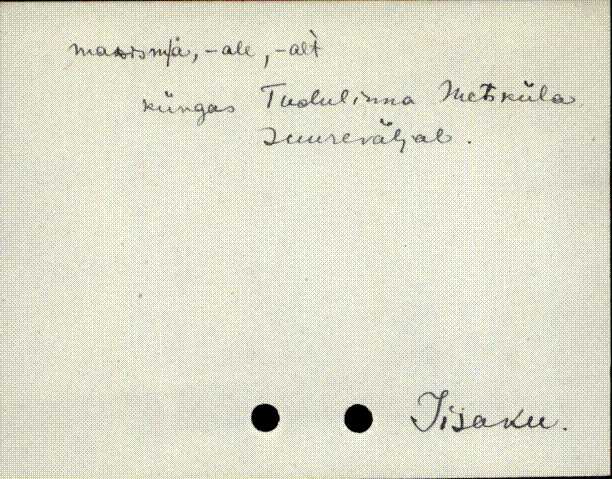 massismjä, -ale, -alt
küngas Tudulinna Metsküla
Suureväljal.
Iisaku.